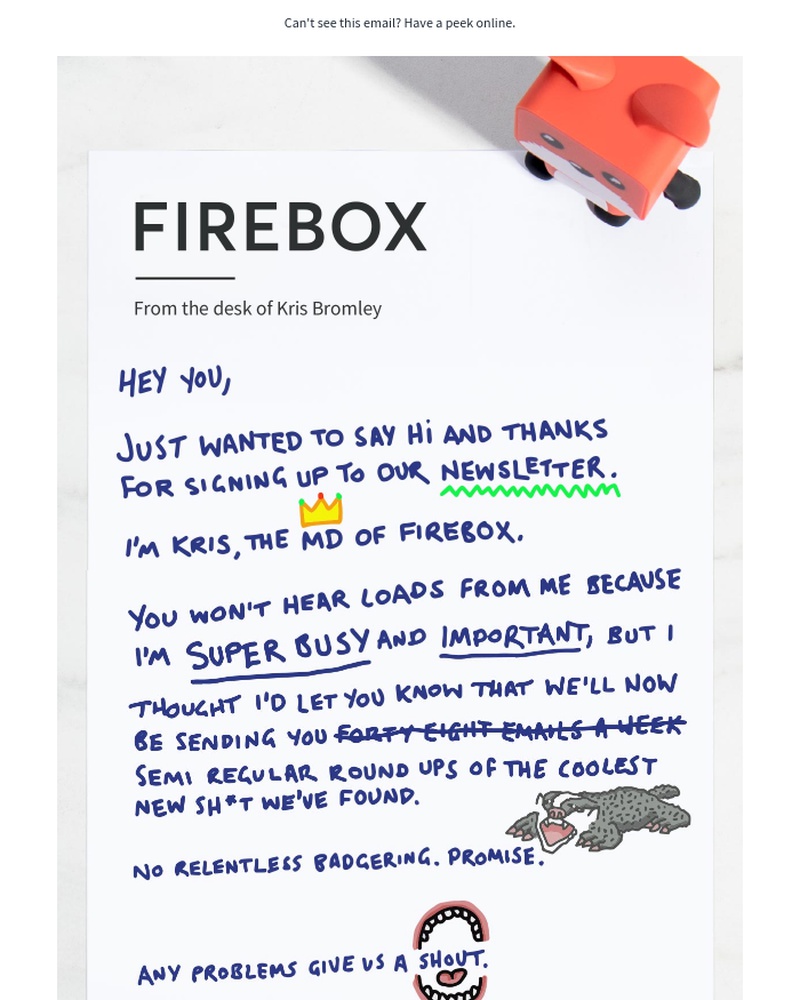 Can't see this email? Have a peek online.
FIREBOX
From the desk of Kris Bromley
HEY YOU,
JUST WANTED TO SAY Hi AND THANKS
FOR SIGNING UP TO OUR NEWSLETTER.
I'M KRIS, THE MD OF FIREBOX.
YOU WON'T HEAR LOADS FROM ME BECAUSE
I'M SUPER BUSY AND IMPORTANT, BUT I
THOUGHT I'D LET YOU KNOW THAT WE'LL NOW
BE SENDING YOU FORTY EIGHT EMAILS A WEEK
SEMI REGULAR ROUND UPS OF THE COOLEST
NEW SH*T WE'VE FOUND.
NO RELENTLESS BADGERING. PROMISE.
ANY PROBLEMS GIVE US A SHOUT.